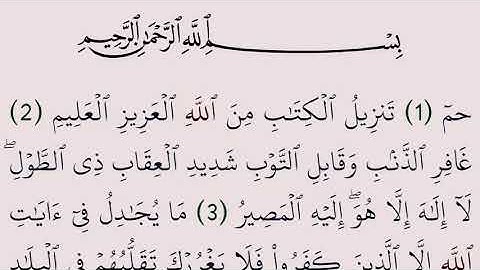 بِسْمِ ٱللَّهِ ٱلرَّحْمَٰنِ ٱلرَّحِيمِ
حمٓ (1) تَنزِيلُ ٱلْكِتَٰبِ مِنَ ٱللَّهِ ٱلْعَزِيزِ ٱلْعَلِيمِ (2)
غَافِرِ ٱلذَّنۢبِ وَقَابِلِ ٱلتَّوْبِ شَدِيدِ ٱلْعِقَابِ ذِى ٱلطَّوْلِ ۖ
لَآ إِلَٰهَ إِلَّا هُوَ ۖ إِلَيْهِ ٱلْمَصِيرُ (3) مَا يُجَٰدِلُ فِىٓ ءَايَٰتِ
ٱللَّهِ إِلَّا ٱلَّذِينَ كَفَرُوا۟ فَلَا يَغْرُرْكَ تَقَلُّبُهُمْ فِى ٱلْبِلَٰدِ